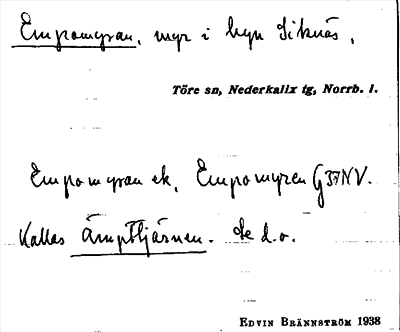 Empomyran, myr i byn Siknäs,
Töre sn, Nederkalix tg, Norrb. l.
Empomyran ek. Empomyren G 37 NV.
Kallas Ämpttjärnen. Se d.o.
EDVIN BRÄNNSTRÖM 1938